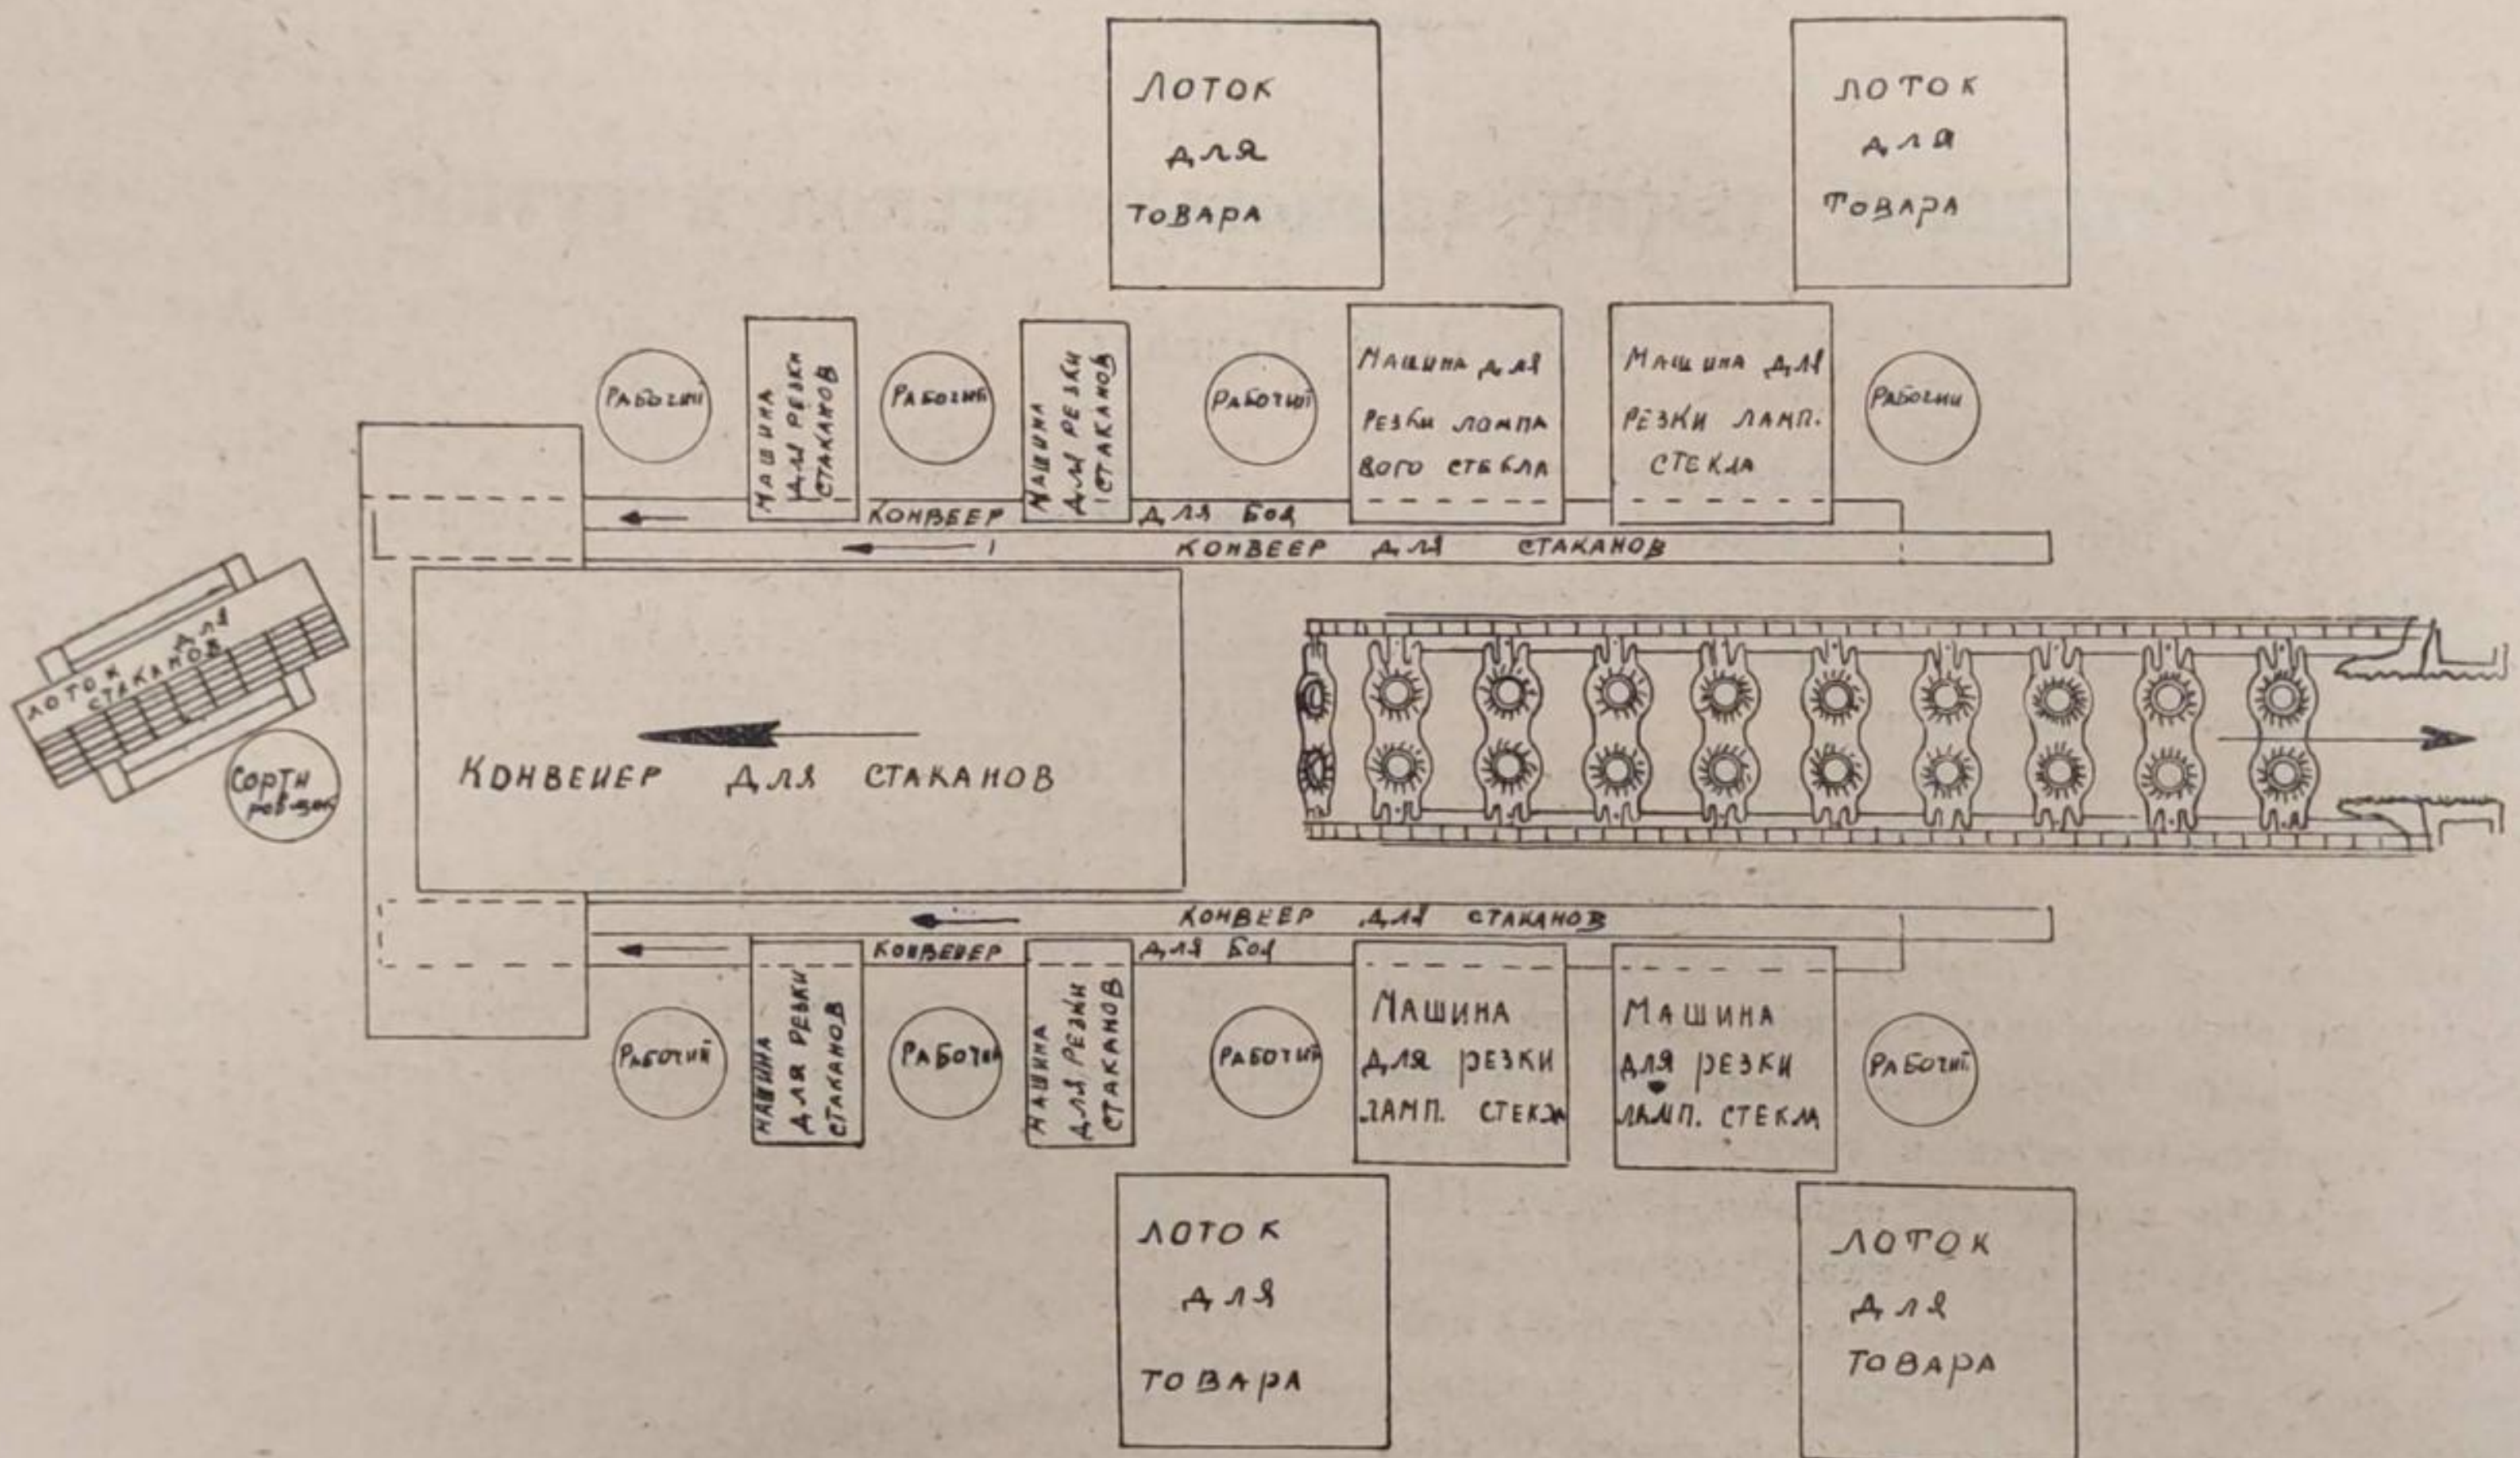 ЛОТОК
ДЛЯ
ТОВАРА
ЛОТОК
ДЛЯ
ТОВАРА
РАБОЧИЙ
МАШИНА
ДЛЯ РЕЗКИ
СТАКАНОВ
РАБОЧИЙ
МАШИНА
ДЛЯ РЕЗКИ
СТАКАНОВ
РАБОЧИЙ
МАШИНА ДЛЯ
РЕЗКИ ЛАМПА
ВОГО СТЕКЛА
МАШИНА ДЛЯ
РЕЗКИ ЛАМП.
СТЕКЛА
РАБОЧИЙ
КОНВЕЕР ДЛЯ БОЯ
КОНВЕЕР ДЛЯ СТАКАНОВ
ЛОТОК ДЛЯ
СТАКАНОВ
СОРТИ
РОВЩИК
КОНВЕИЕР ДЛЯ СТАКАНОВ
КОНВЕЕР ДЛЯ СТАКАНОВ
КОНВЕИЕР ДЛЯ БОЯ
РАБОЧИЙ
МАШИНА
ДЛЯ РЕЗКИ
СТАКАНОВ
РАБОЧИЙ
МАШИНА
ДЛЯ РЕЗКИ
СТАКАНОВ
РАБОЧИЙ
МАШИНА
ДЛЯ РЕЗКИ
ЛАМП. СТЕКЛА
МАШИНА
ДЛЯ РЕЗКИ
ЛАМП. СТЕКЛА
РАБОЧИЙ
ЛОТОК
ДЛЯ
ТОВАРА
ЛОТОК
ДЛЯ
ТОВАРА